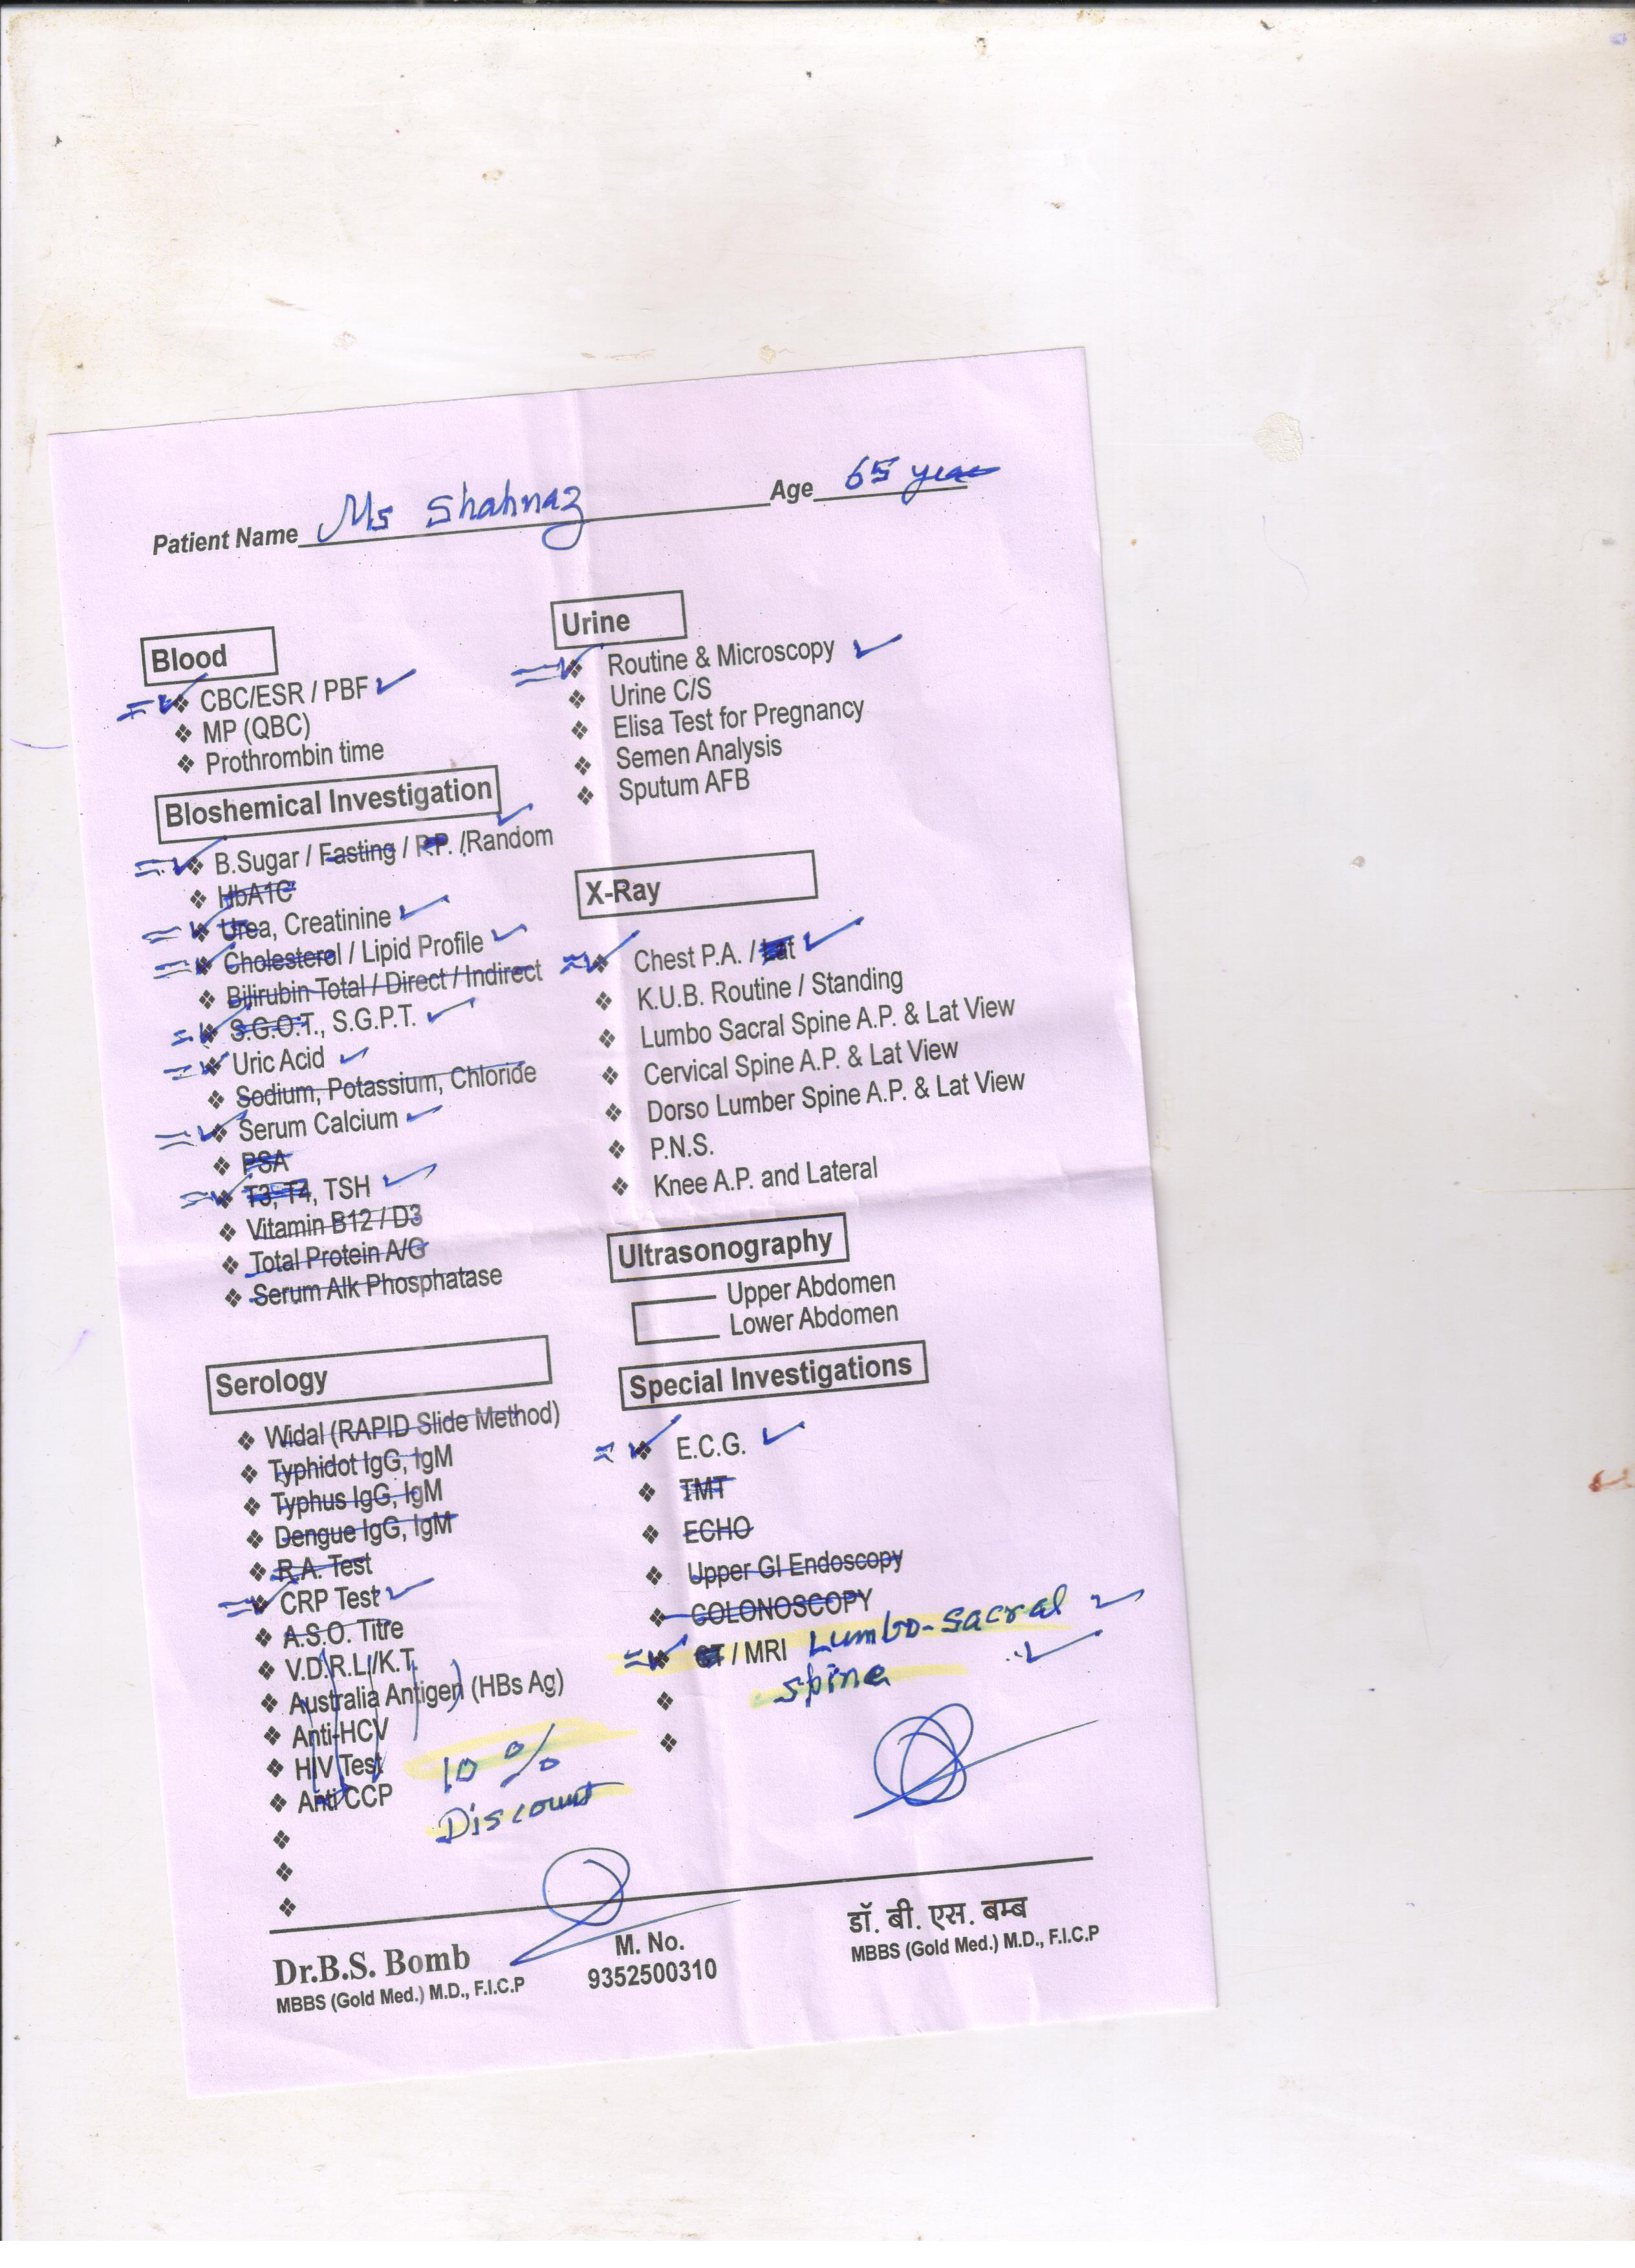 Patient Name Ms Shahnaz Age 65 year
Blood
CBC/ESR / PBF
MP (QBC)
Prothrombin time
Bloshemical Investigation
B.Sugar / Fasting / P.P. /Random
HbA1C
Urea, Creatinine
Cholesterol / Lipid Profile
Bilirubin Total / Direct / Indirect
S.G.O.T., S.G.P.T.
Uric Acid
Sodium, Potassium, Chloride
Serum Calcium
PSA
T3, T4, TSH
Vitamin B12 / D3
Total Protein A/G
Serum Alk Phosphatase
Serology
Widal (RAPID Slide Method)
Typhidot IgG, IgM
Typhus IgG, IgM
Dengue IgG, IgM
R.A. Test
CRP Test
A.S.O. Titre
V.D.R.L./K.T.
Australia Antigen (HBs Ag)
Anti-HCV
HIV Test
Anti CCP
10 %
Discount
Urine
Routine & Microscopy
Urine C/S
Elisa Test for Pregnancy
Semen Analysis
Sputum AFB
X-Ray
Chest P.A. / Lat
K.U.B. Routine / Standing
Lumbo Sacral Spine A.P. & Lat View
Cervical Spine A.P. & Lat View
Dorso Lumber Spine A.P. & Lat View
P.N.S.
Knee A.P. and Lateral
Ultrasonography
Upper Abdomen
Lower Abdomen
Special Investigations
E.C.G.
TMT
ECHO
Upper GI Endoscopy
COLONOSCOPY
CT / MRI Lumbo-Sacral
Spine
Dr.B.S. Bomb
MBBS (Gold Med.) M.D., F.I.C.P
M. No.
9352500310
डॉ. बी. एस. बम्ब
MBBS (Gold Med.) M.D., F.I.C.P